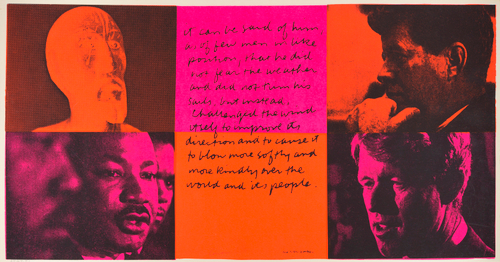 it can be said of him
as of few men in like
position, that he did
not fear the weather
and did not trim his
sails, but instead,
challenged the wind
itself to improve its
direction and to cause it
to blow more softly and
more kindly over the
world and its people.